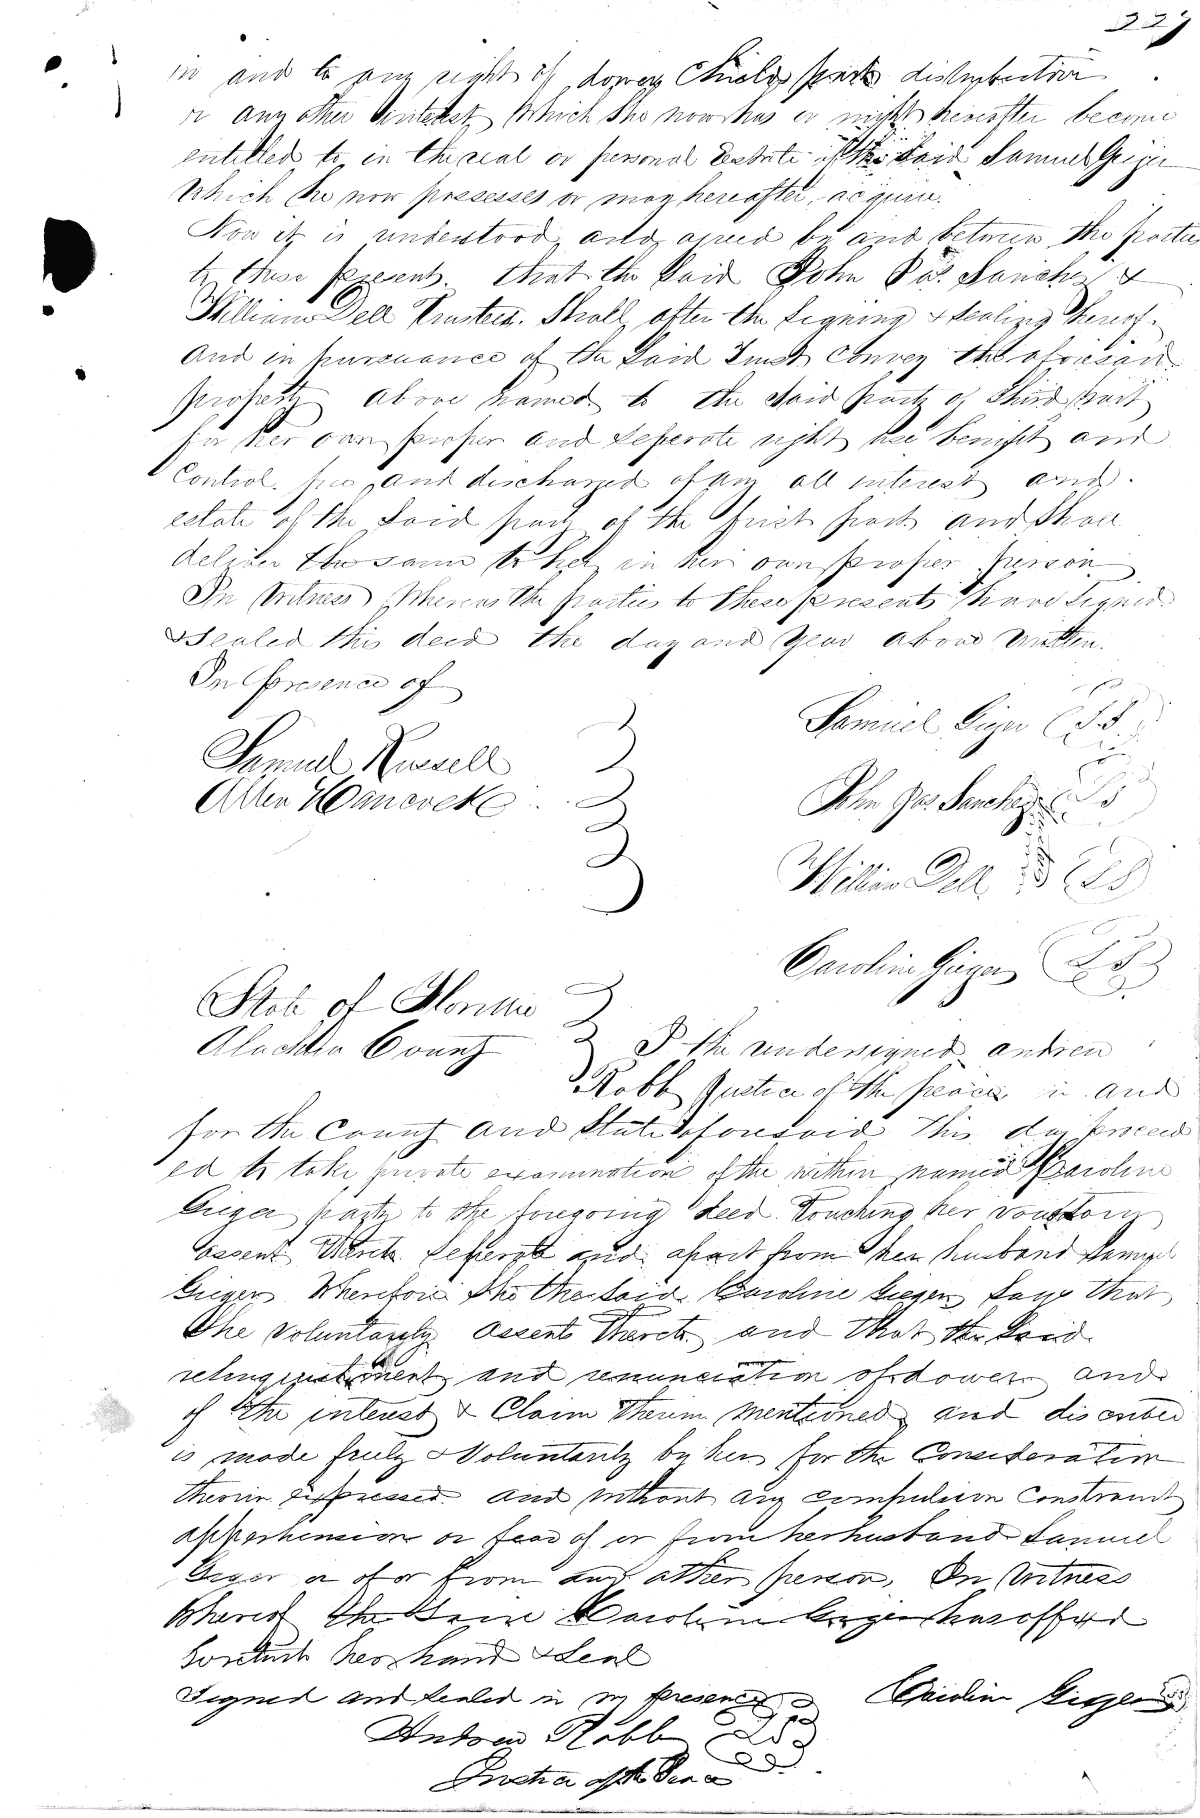 227
in and to any right of dower Childs part distribution
or any other interest which she now has or might hereafter become
entitled to in the real or personal Estate of the said Samuel Geiger
which he now possesses or may hereafter acquire.
Now it is understood and agreed by and between the parties
to these present. that the said John Jas. Sanchez &
William Dell Trustees. Shall after the signing & sealing hereof.
And in pursuance of the said Trust convey the aforesaid
property above named to the said party of third part
for her own proper and seperate right use benifit and
Control. free and discharged of any all interest and
estate of the said party of the first part and shall
deliver the same to her in her own proper person
In Witness Whereas the parties to these presents have signed
& sealed this deed the day and year above written.
In presence of
Samuel Geiger (LS)
Samuel Russell
Allen Hancock
John Jas. Sanchez (LS)
William Dell (LS)
Caroline Gieger (LS)
State of Florida
Alachua County I the undersigned andrew
Robb Justice of the peace in and
for the County and State aforesaid This day proceed
ed to take private examination of the within named Caroline
Gieger party to the foregoing deed. Touching her voluntary
assent thereto seperate and apart from her husband Samuel
Gieger. Wherefore she the said Caroline Gieger says that
She voluntarily assents thereto and that the said
relinquishment and renunciation of dower and
of the interest & Claim therein mentioned and discribed
is made freely & Voluntarily by her for the Consideration
therein expressed and without any compulsion constraint
apprehension or fear of or from her husband Samuel
Gieger or of or from any other person, In Witness
Whereof the Said Caroline Gieger has affixed
hereunto her hand & seal
Signed and sealed in my presence Caroline Gieger
Andrew Robb LS
Justice of the Peace